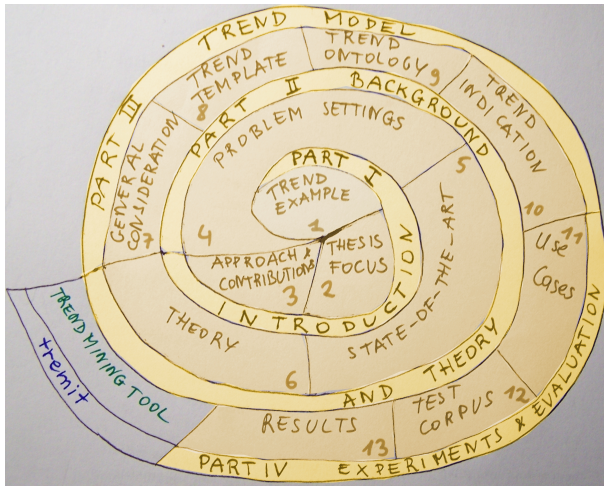 PART I INTRODUCTION
TREND
EXAMPLE
1
THESIS
FOCUS
2
APPROACH &
CONTRIBUTIONS
3
PART II BACKGROUND AND THEORY
PROBLEM SETTINGS
4
5
STATE-OF-THE-ART
THEORY
6
PART III TREND MODEL
GENERAL
CONSIDERATION
7
TREND
TEMPLATE
8
TREND
ONTOLOGY
9
TREND
INDICATION
10
PART IV EXPERIMENTS & EVALUATION
11
USE
CASES
TEST
CORPUS
12
RESULTS
13
TREND MINING TOOL
tremit